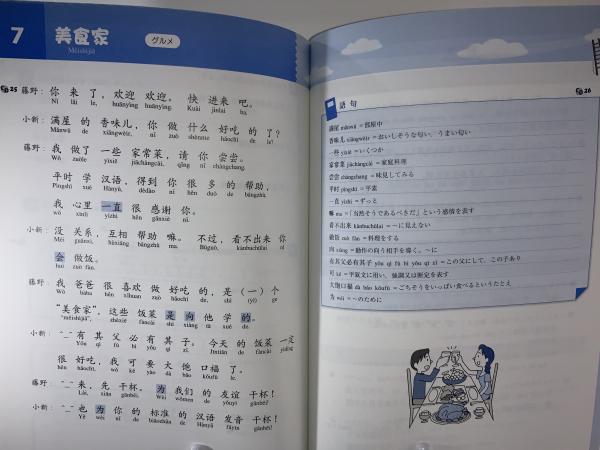 7
美食家
Měishíjiā
グルメ
25
藤野： 你 来 了，欢迎 欢迎。 快 进来 吧。
Nǐ lái le, huānyíng huānyíng. Kuài jìnlai ba.
小新： 满屋 的 香味儿，你 做 什么 好吃 的 了？
Mǎnwū de xiāngwèir, nǐ zuò shénme hǎochī de le?
藤野： 我 做了 一些 家常菜，请 你 尝尝。
Wǒ zuòle yìxiē jiāchángcài, qǐng nǐ chángchang.
平时 学 汉语，得到 你 很 多 的 帮助，
Píngshí xué Hànyǔ, dédào nǐ hěn duō de bāngzhù,
我 心里 一直 很 感谢 你。
wǒ xīnli yìzhí hěn gǎnxiè nǐ.
小新： 没 关系，互相 帮助 嘛。 不过，看不出来 你
Méi guānxi, hùxiāng bāngzhù ma. Búguò, kànbuchūlai nǐ
会 做饭。
huì zuò fàn.
藤野： 我 爸爸 很 喜欢 做 好吃 的，是（一）个
Wǒ bàba hěn xǐhuan zuò hǎochī de, shì (yí) ge
“美食家”，这些 饭菜 是 向 他 学 的。
“měishíjiā”, zhèxiē fàncài shì xiàng tā xué de.
小新： 有 其 父 必 有 其 子。 今天 的 饭菜 一定
Yǒu qí fù bì yǒu qí zǐ. Jīntiān de fàncài yídìng
很 好吃，我 可 要 大 饱 口福 了。
hěn hǎochī, wǒ kě yào dà bǎo kǒufú le.
藤野： 来，先 干杯。 为 我们 的 友谊 干杯！
Lái, xiān gānbēi. Wèi wǒmen de yǒuyì gānbēi!
小新： 也 为 你 的 标准 的 汉语 发音 干杯！
Yě wèi nǐ de biāozhǔn de Hànyǔ fāyīn gānbēi!
26
語句
满屋 mǎnwū＝部屋中
香味儿 xiāngwèir＝おいしそうな匂い、うまい匂い
一些 yìxiē＝いくつか
家常菜 jiāchángcài＝家庭料理
尝尝 chángchang＝味見してみる
平时 píngshí＝平素
一直 yìzhí＝ずっと
嘛 ma＝「当然そうであるべきだ」という感情を表す
看不出来 kànbuchūlai＝～に見えない
做饭 zuò fàn＝料理をする
向 xiàng＝動作の向う相手を導く。～に
有其父必有其子 yǒu qí fù bì yǒu qí zǐ＝この父にして、この子あり
可 kě＝平叙文に用い、強調又は断定を表す
大饱口福 dà bǎo kǒufú＝ごちそうをいっぱい食べるというたとえ
为 wèi＝～のために